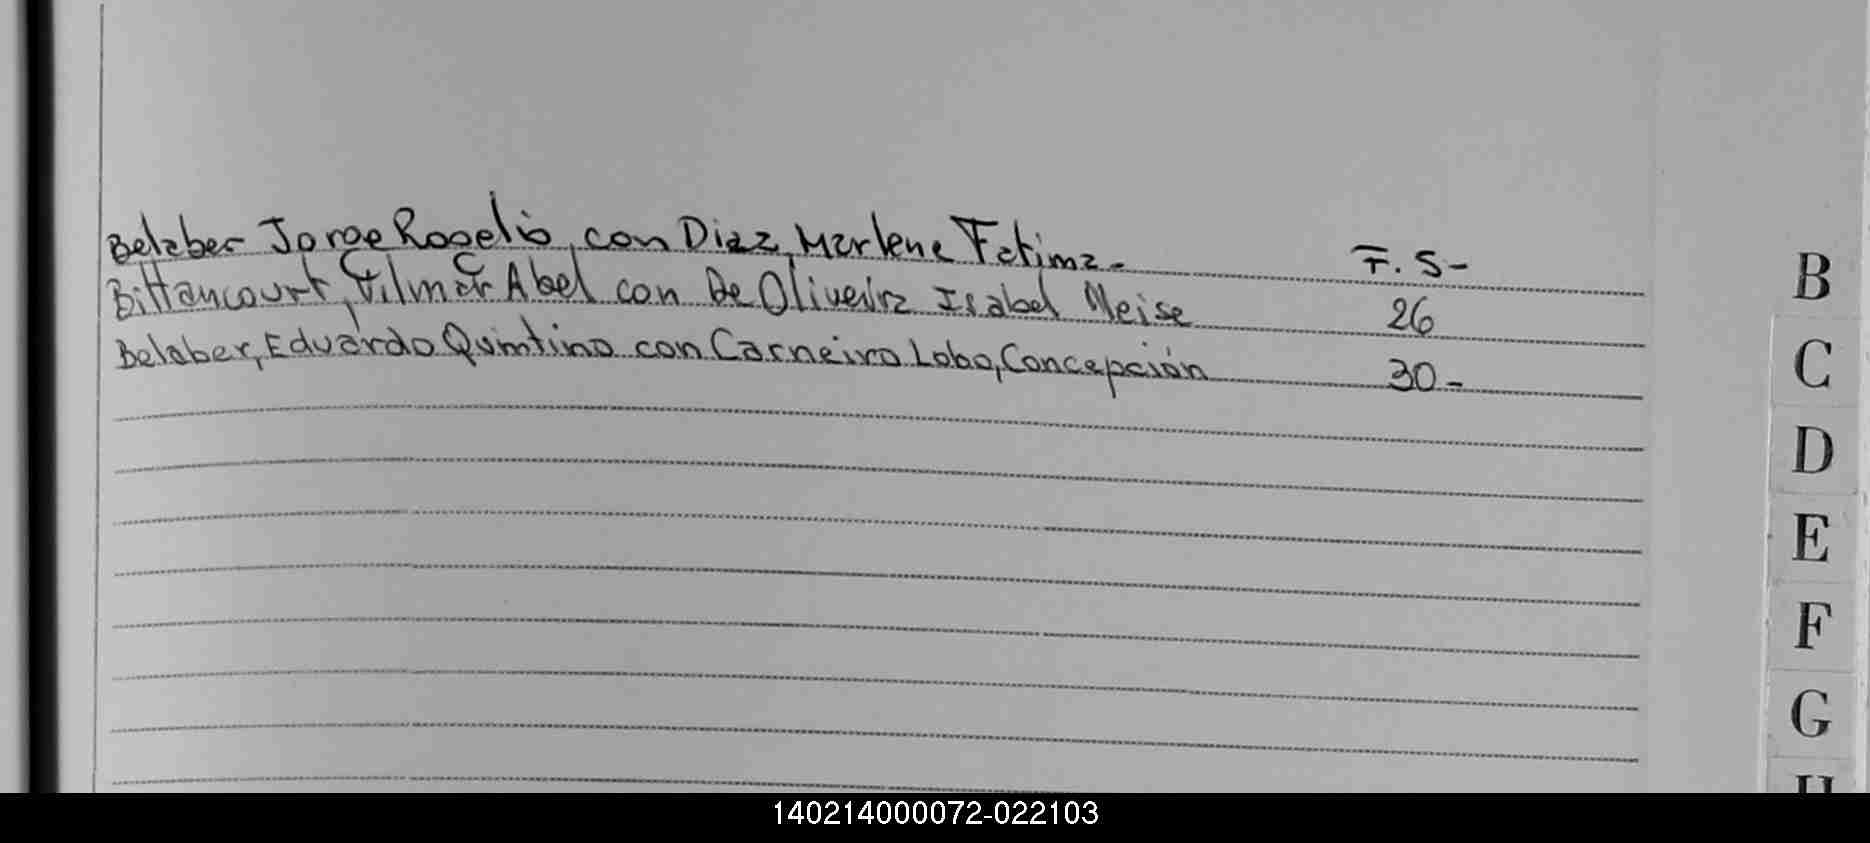 Belaber Jorge Rogelio, con Diaz, Marlene Fatima- F. 5-
Bittancourt, Gilmar Abel con De Oliveira Isabel Neise 26
Belaber, Eduardo Quintino con Carneiro Lobo, Concepción 30-
B
C
D
E
F
G
H
140214000072-022103